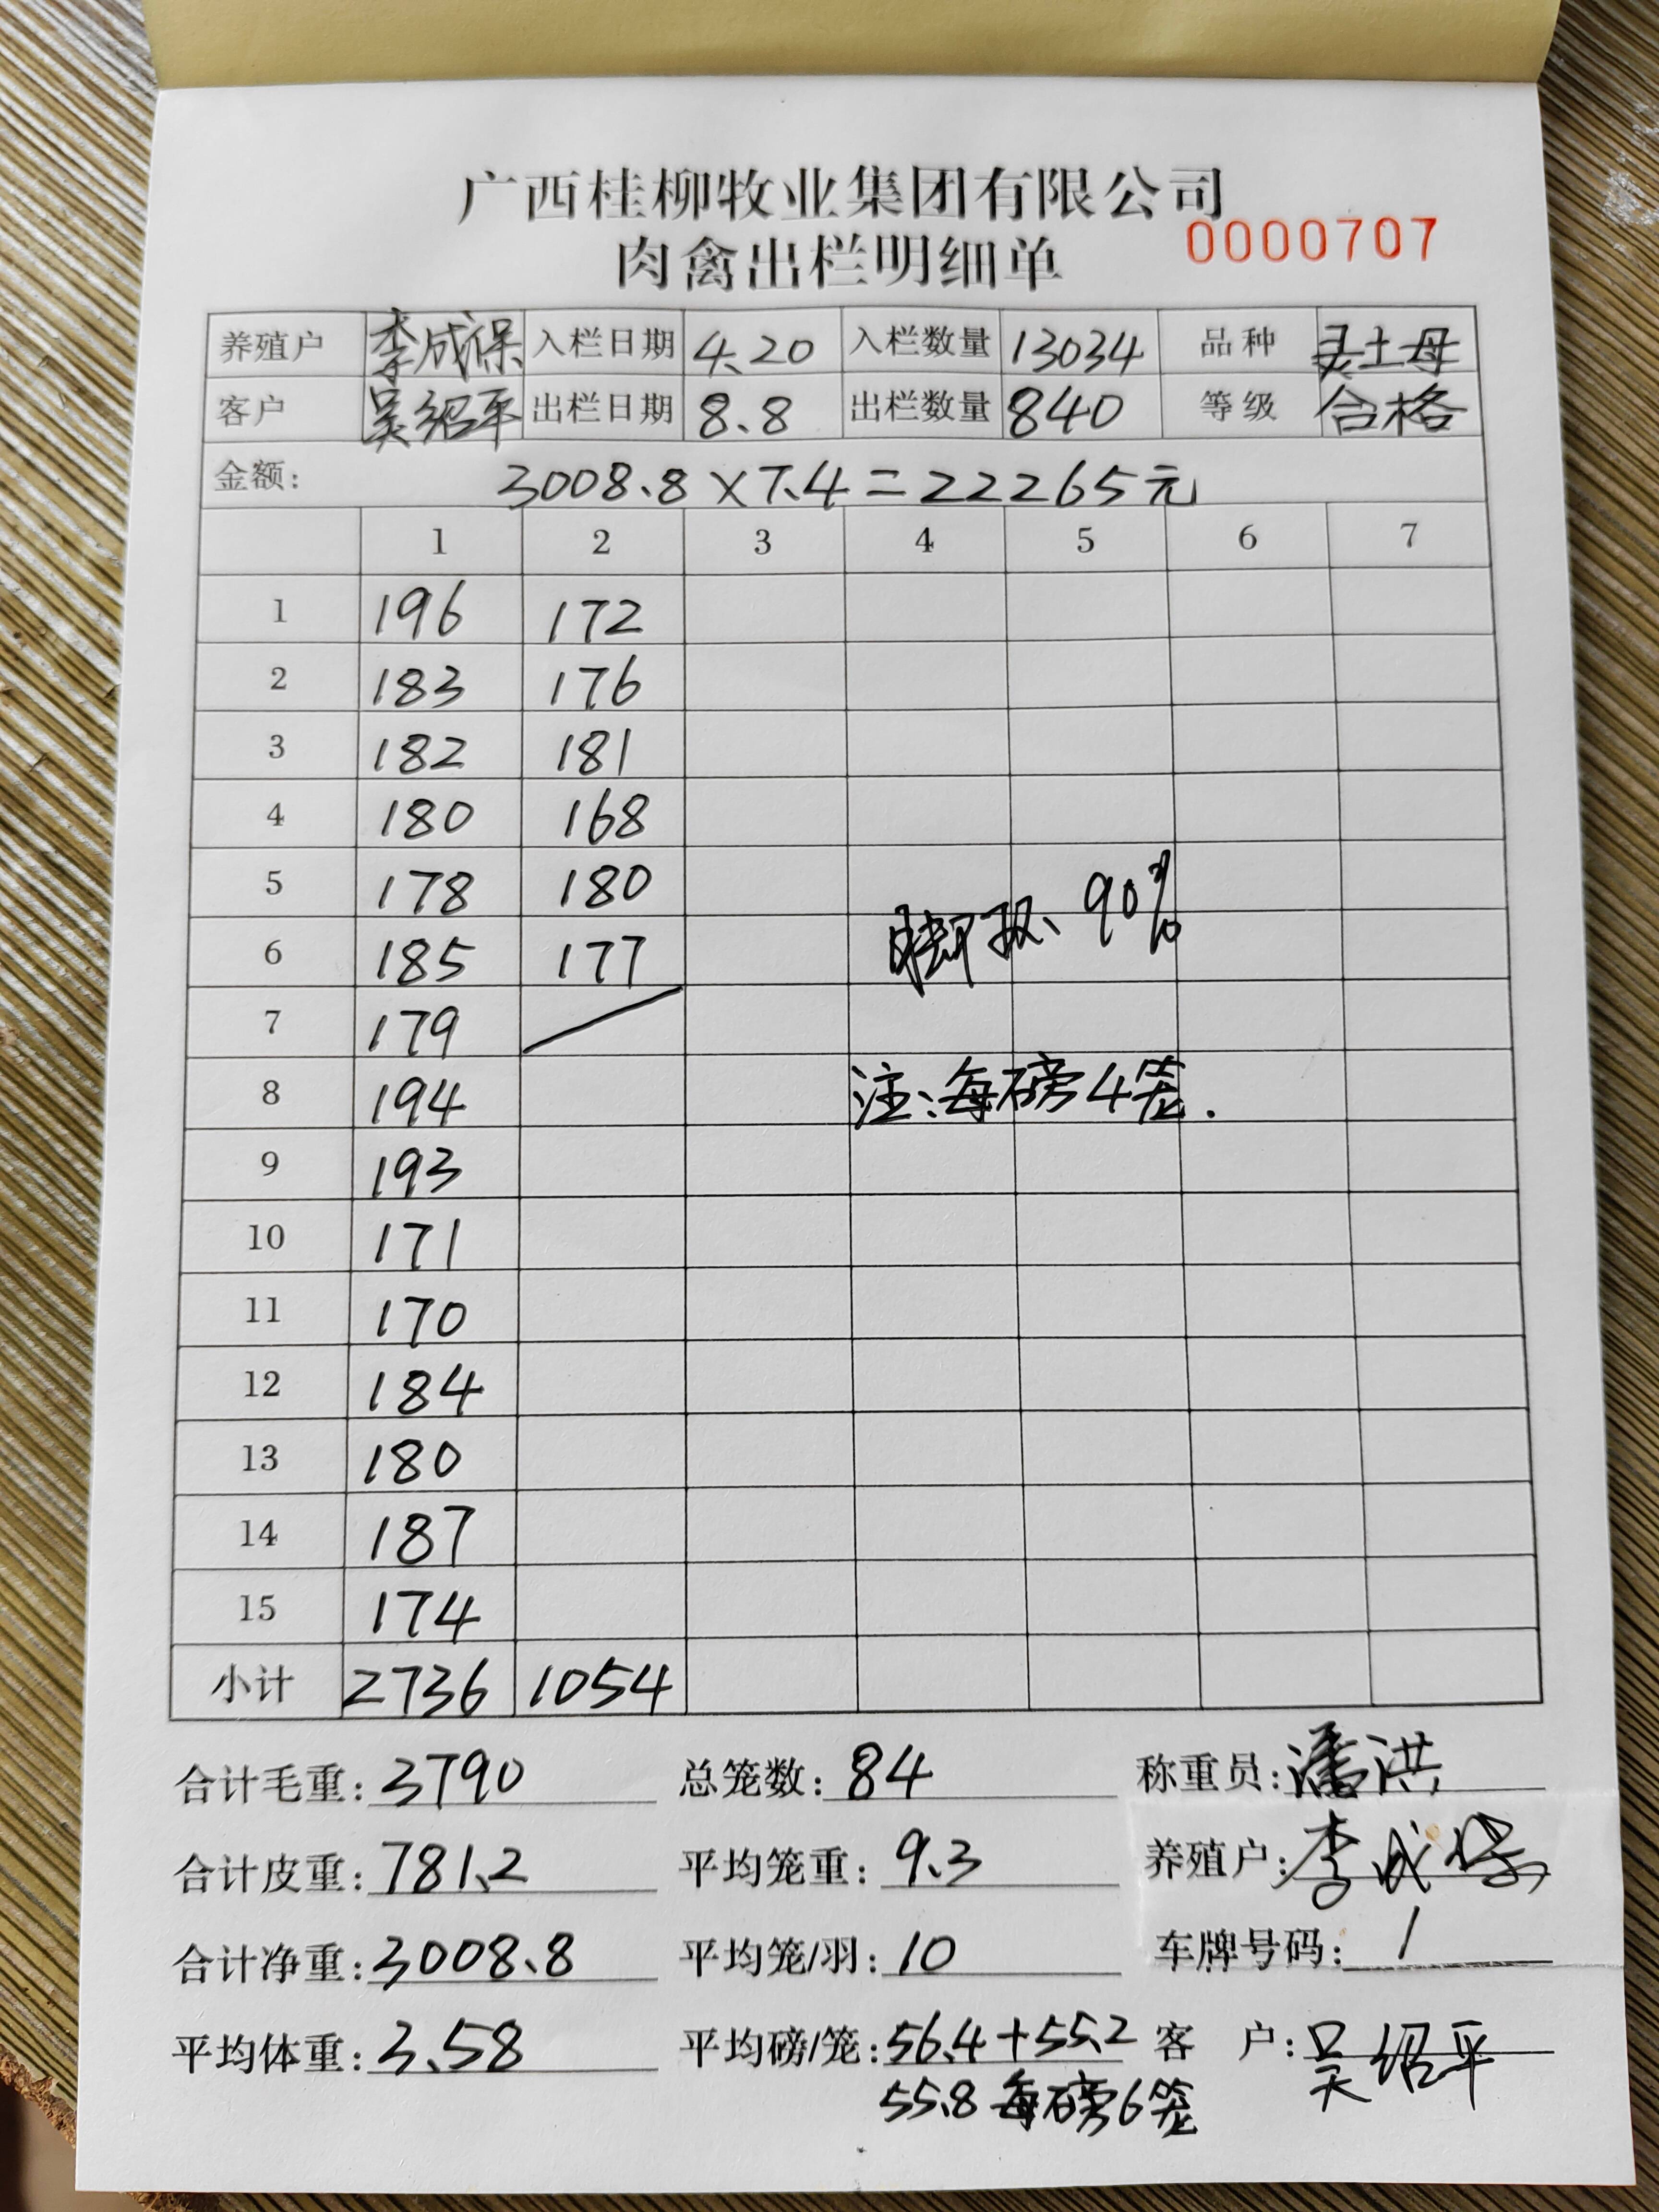 广西桂柳牧业集团有限公司
肉禽出栏明细单 0000707
养殖户 李成保 入栏日期 4.20 入栏数量 13034 品种 灵土母
客户 吴绍平 出栏日期 8.8 出栏数量 840 等级 合格
金额: 3008.8×7.4=22265元
1 2 3 4 5 6 7
1 196 172
2 183 176
3 182 181
4 180 168
5 178 180
脚 90%
6 185 177
7 179
8 194 注:每磅4笼.
9 193
10 171
11 170
12 184
13 180
14 187
15 174
小计 2736 1054
合计毛重:3790 总笼数:84 称重员:潘洪
合计皮重:781.2 平均笼重:9.3 养殖户:李成保
合计净重:3008.8 平均笼/羽:10 车牌号码: 1
平均体重:3.58 平均磅/笼:56.4+55.2 客 户:吴绍平
55.8 每磅6笼